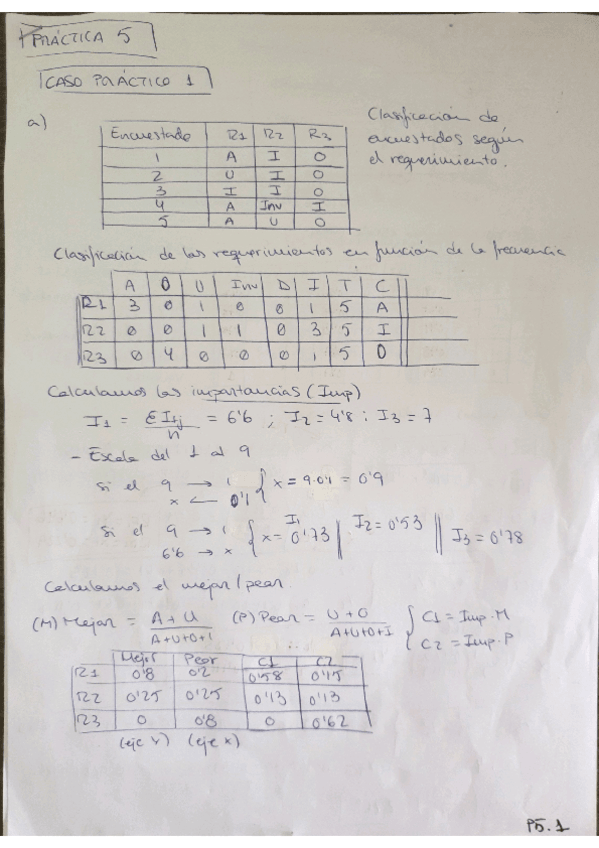 PRÁCTICA 5
CASO PRÁCTICO 1
a)
Clasificación de
encuestados según
el requerimiento.
Encuestado R1 R2 R3
1 A I O
2 U I O
3 I I O
4 A Inv I
5 A U O
Clasificación de los requerimientos en función de la frecuencia
A O U Inv D I T C
R1 3 0 1 0 0 1 5 A
R2 0 0 1 1 0 3 5 I
R3 0 4 0 0 0 1 5 O
Calculamos las importancias (Imp)
I1 = ΣI1j/n = 6'6 ; I2 = 4'8 ; I3 = 7
- Escala del 1 al 9
si el 9 → 1 { x = 9·0'1 = 0'9
x ← 0'1
si el 9 → 1 { x = 0'73 I1 || I2 = 0'53 || I3 = 0'78
6'6 → x
Calculamos el mejor/peor.
(M) Mejor = A+U / A+U+O+I (P) Peor = U+O / A+U+O+I { C1 = Imp·M
C2 = Imp·P
Mejor Peor C1 C2
R1 0'8 0'2 0'58 0'15
R2 0'25 0'25 0'13 0'13
R3 0 0'8 0 0'62
(eje Y) (eje X)
P5.1